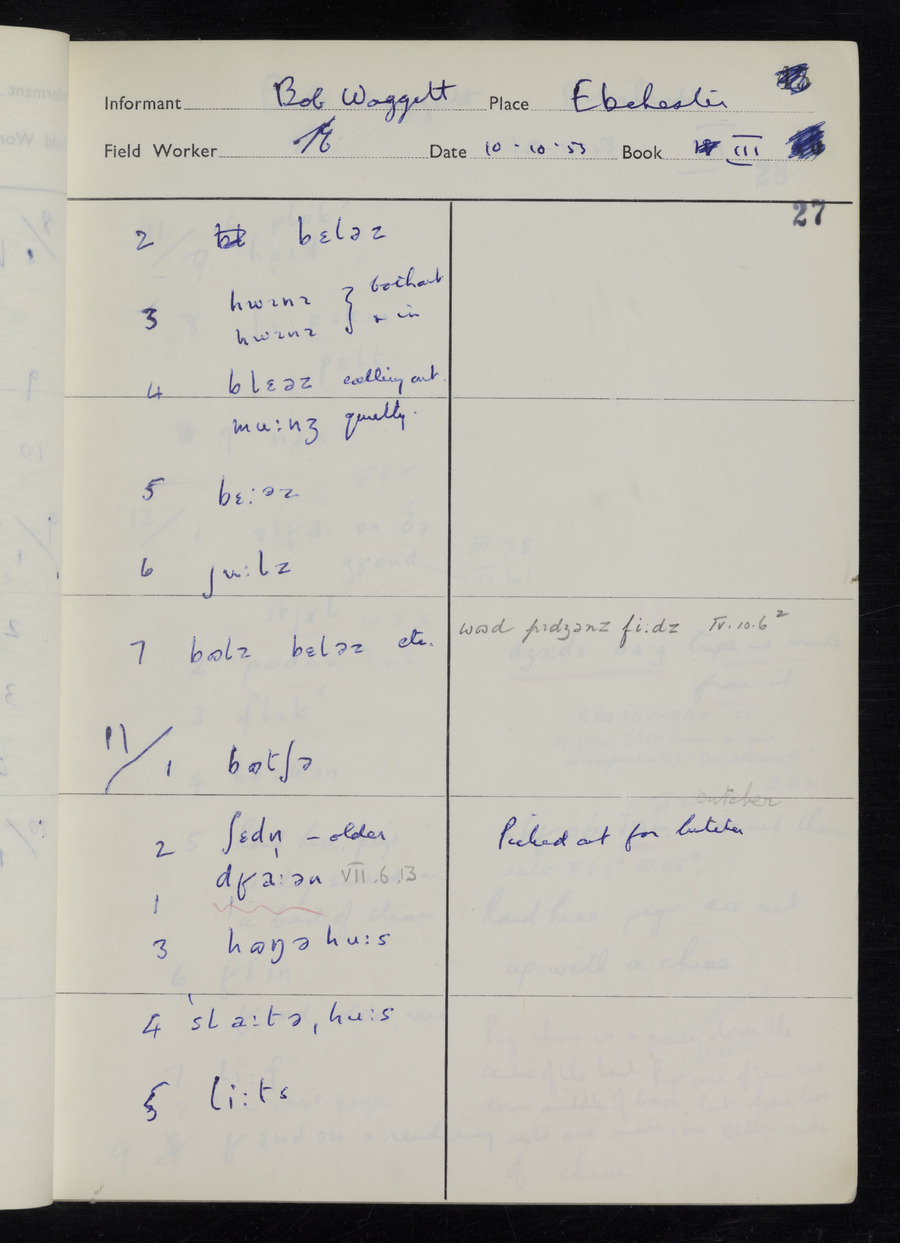 Informant Bob Waggett Place Ebchester
Field Worker Date 10 · 10 · 53 Book III
27
2 bɛləz
3 hwɪnɪ } both out
hwɪnɪ & in
4 blɛəz calling out.
mu:nz quietly.
5 bɛ:əz
6 ju:lz
7 bɷlz bɛləz etc. wɷd pɪdʒənz fi:dz IV.10.6²
11/ 1 bɷtʃə
butcher
2 ʃɛdn̩ – older Picked out for butcher
1 VII.6.13
3 hɷŋə hu:s
4 ˈsla:tə ˌhu:s
5 li:ts